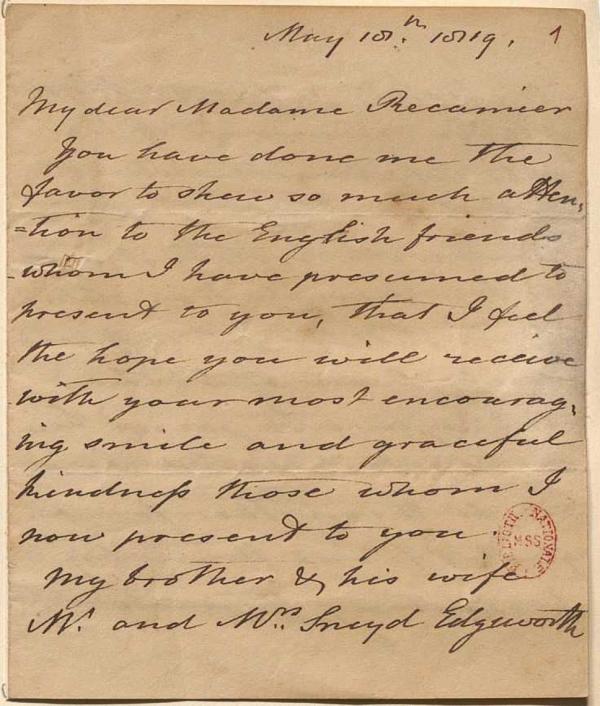 May 18.th 1819.
1
My dear Madame Recamier
You have done me the
favor to shew so much atten,
=tion to the English friends
-whom I have presumed to
present to you, that I feel
the hope you will receive
with your most encourag,
ing smile and graceful
kindness those whom I
now present to you.
BIBLIOTH. NATIONALE
MSS
My brother & his wife
Mr. and Mrs. Sneyd Edgeworth